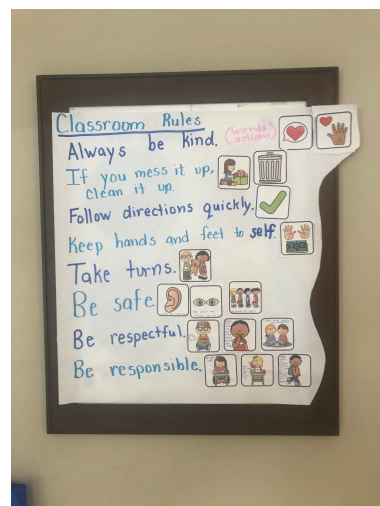 Classroom Rules
Always be kind. (words actions)
If you mess it up,
clean it up.
Follow directions quickly.
Keep hands and feet to self.
Take turns.
Be safe
Be respectful.
Be responsible.